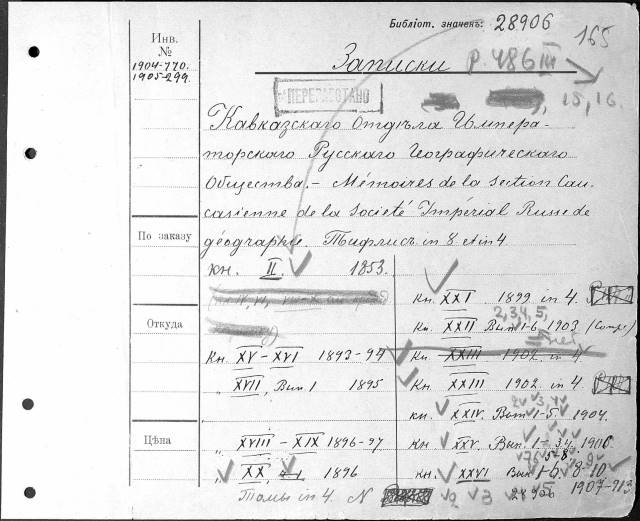 Библіот. значекъ: 28906
165
Инв.
№
1904-770.
1905-299.
Записки
P. 486 III
ПЕРЕРАБОТАНО
15, 16.
Кавказскаго Отдѣла Импера-
торскаго Русскаго Географическаго
Общества. – Mémoires de la Section Cau-
casienne de la Societé Impérial Russe de
géographie. Тифлисъ in 8 et in 4
По заказу
кн. II. 1853.
Кн. XXI 1899 in 4.
2, 3, 4, 5,
Откуда
Кн. XXII Вып 1-6 1903
Кн. XV – XVI 1893-94
Кн. XXIII 1902 in 4
„ XVII, Вып. 1 1895
Кн. XXIII 1902. in 4
кн. XXIV. Вып 1-5. 1904.
Цѣна
„ XVIII – XIX 1896-97
Кн XXV. Вып.
„ XX, 1896
Кн. XXVI Вып 1-6 8-10
Томы in 4. N
2 3 5
28906
1907-913